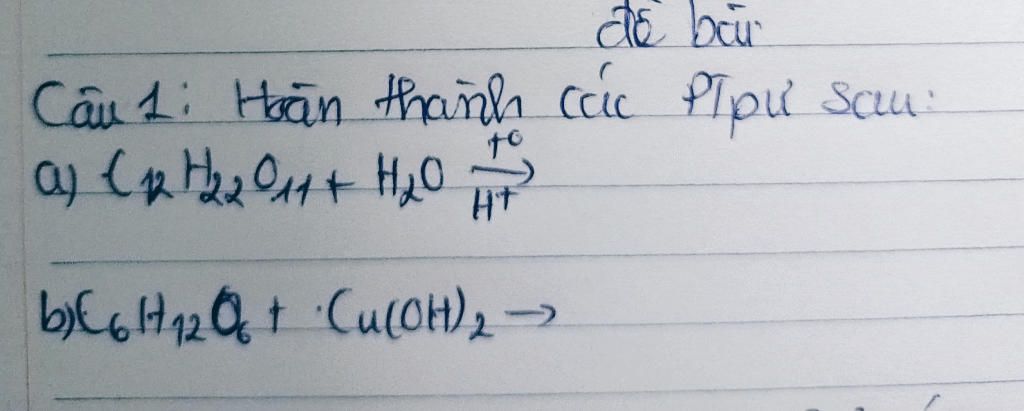 đề bài
Câu 1: Hoàn thành các PTpư sau:
a) C12H22O11 + H2O →
t°
H+
b) C6H12O6 + Cu(OH)2 →